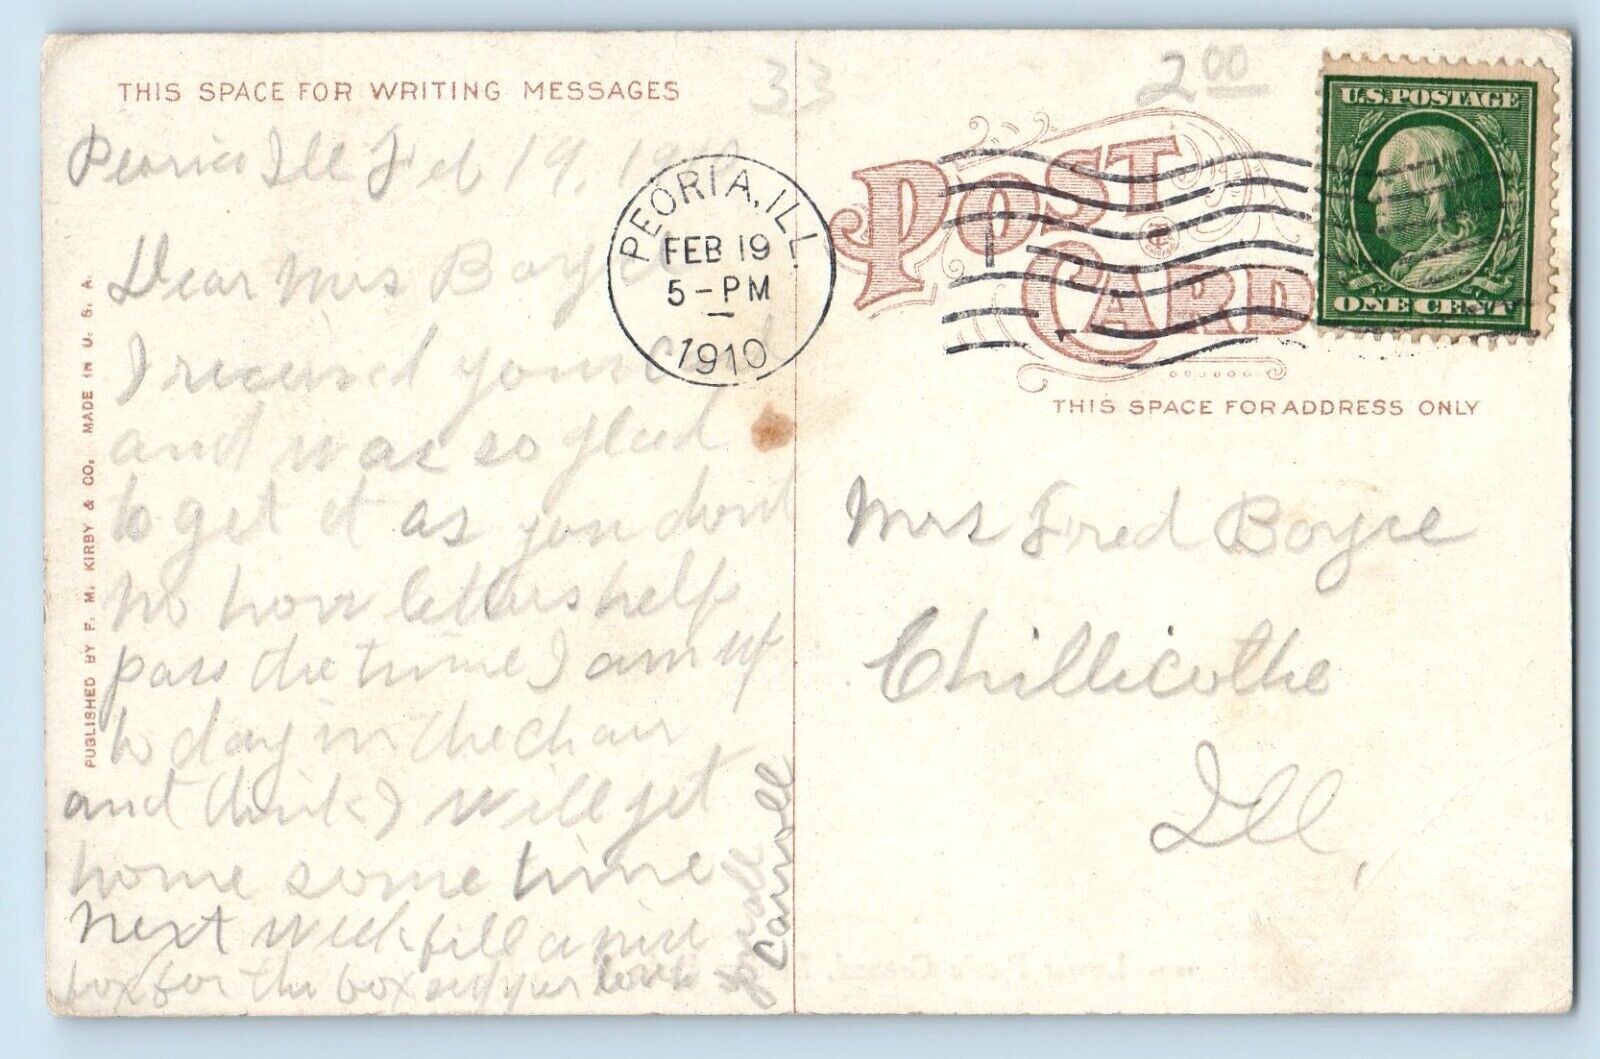 THIS SPACE FOR WRITING MESSAGES
33
2 00
Peoria Ill Feb 19, 1910
Dear Mrs Boyce
I received your card
and was so glad
to get it as you dont
no how letters help
pass the time I am up
to day in the chair
and think I will get
home some time
next week fill a nice
box for the box
Carroll
PUBLISHED BY F. M. KIRBY & CO. MADE IN U. S. A.
PEORIA, ILL.
FEB 19
5-PM
1910
POST CARD
U.S. POSTAGE
ONE CENT
THIS SPACE FOR ADDRESS ONLY
Mrs Fred Boyce
Chillicothe
Ill.